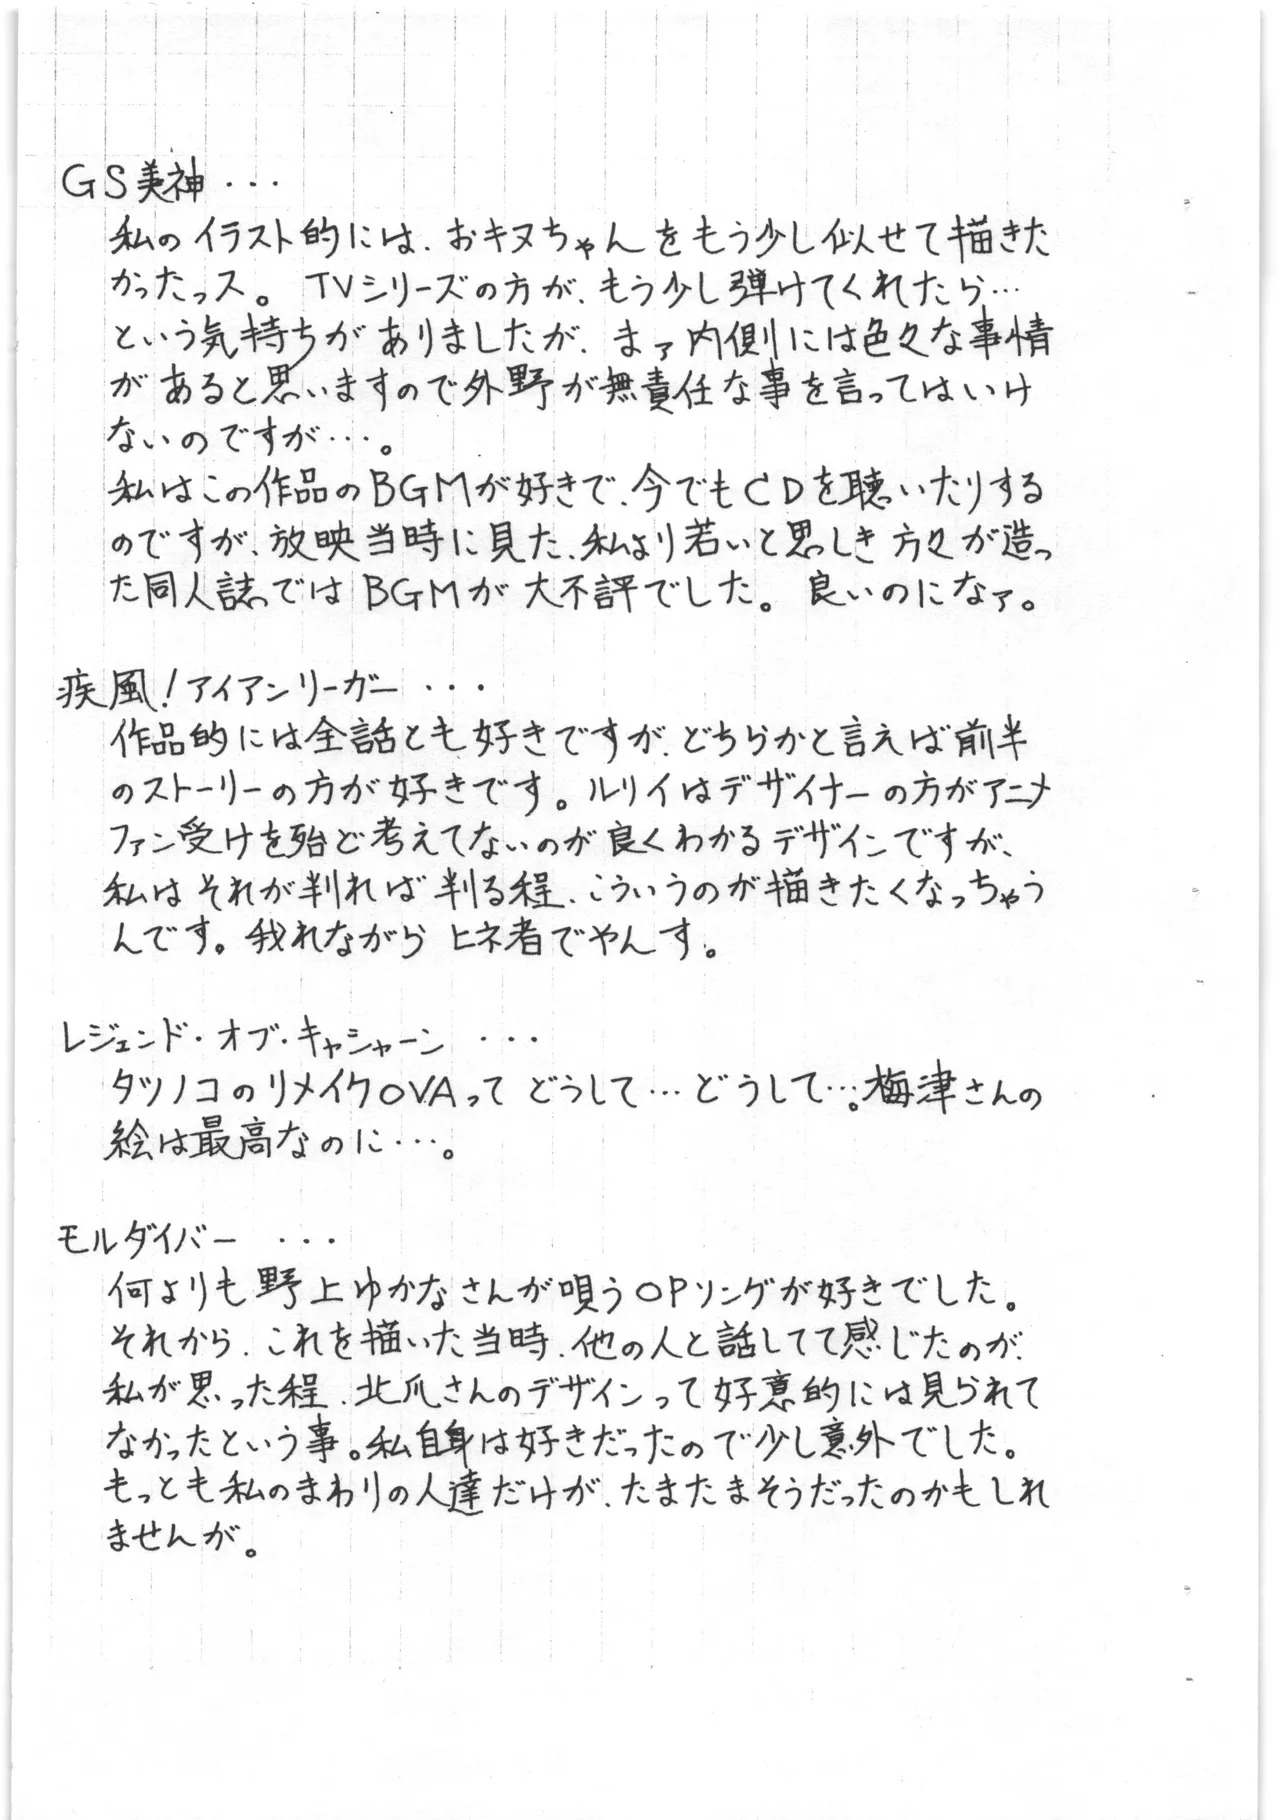 GS美神・・・
私のイラスト的には、おキヌちゃんをもう少し似せて描きた
かったっス。 TVシリーズの方が、もう少し弾けてくれたら…
という気持ちがありましたが、まァ内側には色々な事情
があると思いますので外野が無責任な事を言ってはいけ
ないのですが…。
私はこの作品のBGMが好きで、今でもCDを聴いたりする
のですが、放映当時に見た、私より若いと思しき方々が造っ
た同人誌ではBGMが大不評でした。 良いのになァ。
疾風!アイアンリーガー・・・
作品的には全話とも好きですが、どちらかと言えば前半
のストーリーの方が好きです。ルリイはデザイナーの方がアニメ
ファン受けを殆ど考えてないのが良くわかるデザインですが、
私はそれが判れば判る程、こういうのが描きたくなっちゃう
んです。我れながらヒネ者でやんす。
レジェンド・オブ・キャシャーン・・・
タツノコのリメイクOVAってどうして…どうして…。梅津さんの
絵は最高なのに…。
モルダイバー・・・
何よりも野上ゆかなさんが唄うOPソングが好きでした。
それから、これを描いた当時、他の人と話してて感じたのが、
私が思った程、北爪さんのデザインって好意的には見られて
なかったという事。私自身は好きだったので少し意外でした。
もっとも私のまわりの人達だけが、たまたまそうだったのかもしれ
ませんが。